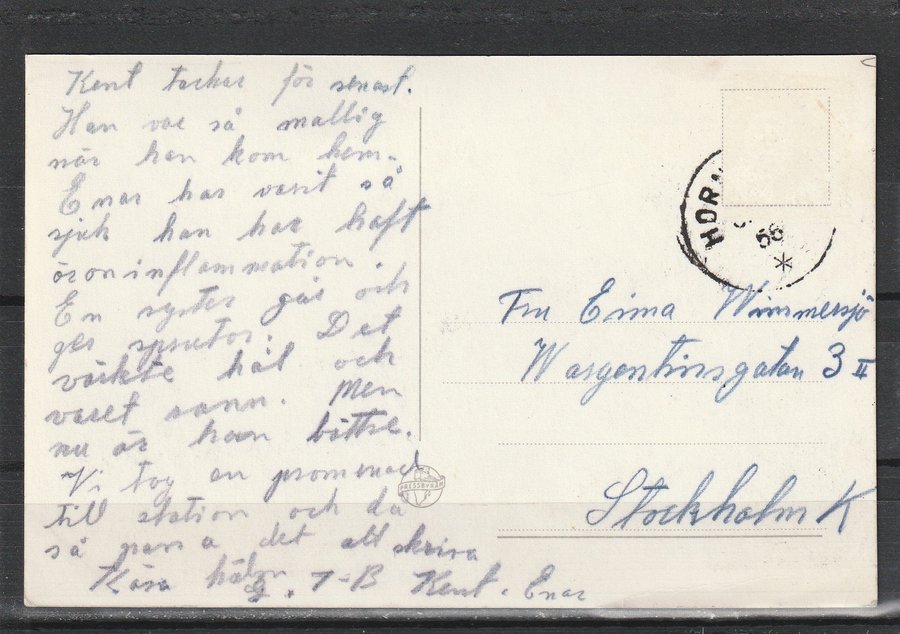 Kent tackar för senast.
Han var så mallig
när han kom hem.
Enar har varit så
sjuk han har haft
öroninflammation.
En syster går och
ger sprutor. Det
värkte hål och
varet rann. Men
nu är han bättre.
Vi tog en promenad
till station och då
så passa det att skriva
Kära häls. T-B Kent. Enar
HORN
68
*
Fru Erma Wimmersjö
Wargentinsgatan 3 II
Stockholm K
PRESSBYRÅN